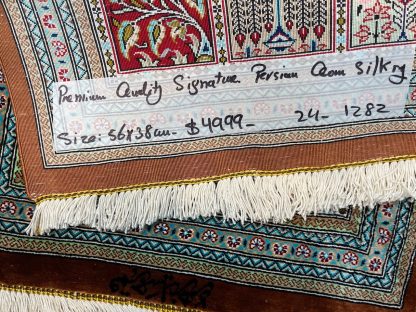 Premium Quality Signature Persian Qom Silk
Size: 56x38cm- $4999- 24- 1282